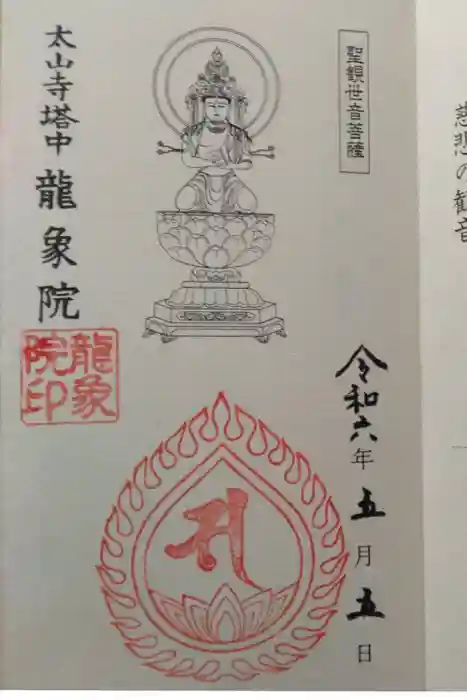 慈悲の観音
聖観世音菩薩
令和六年五月五日
太山寺塔中 龍象院
龍象院印